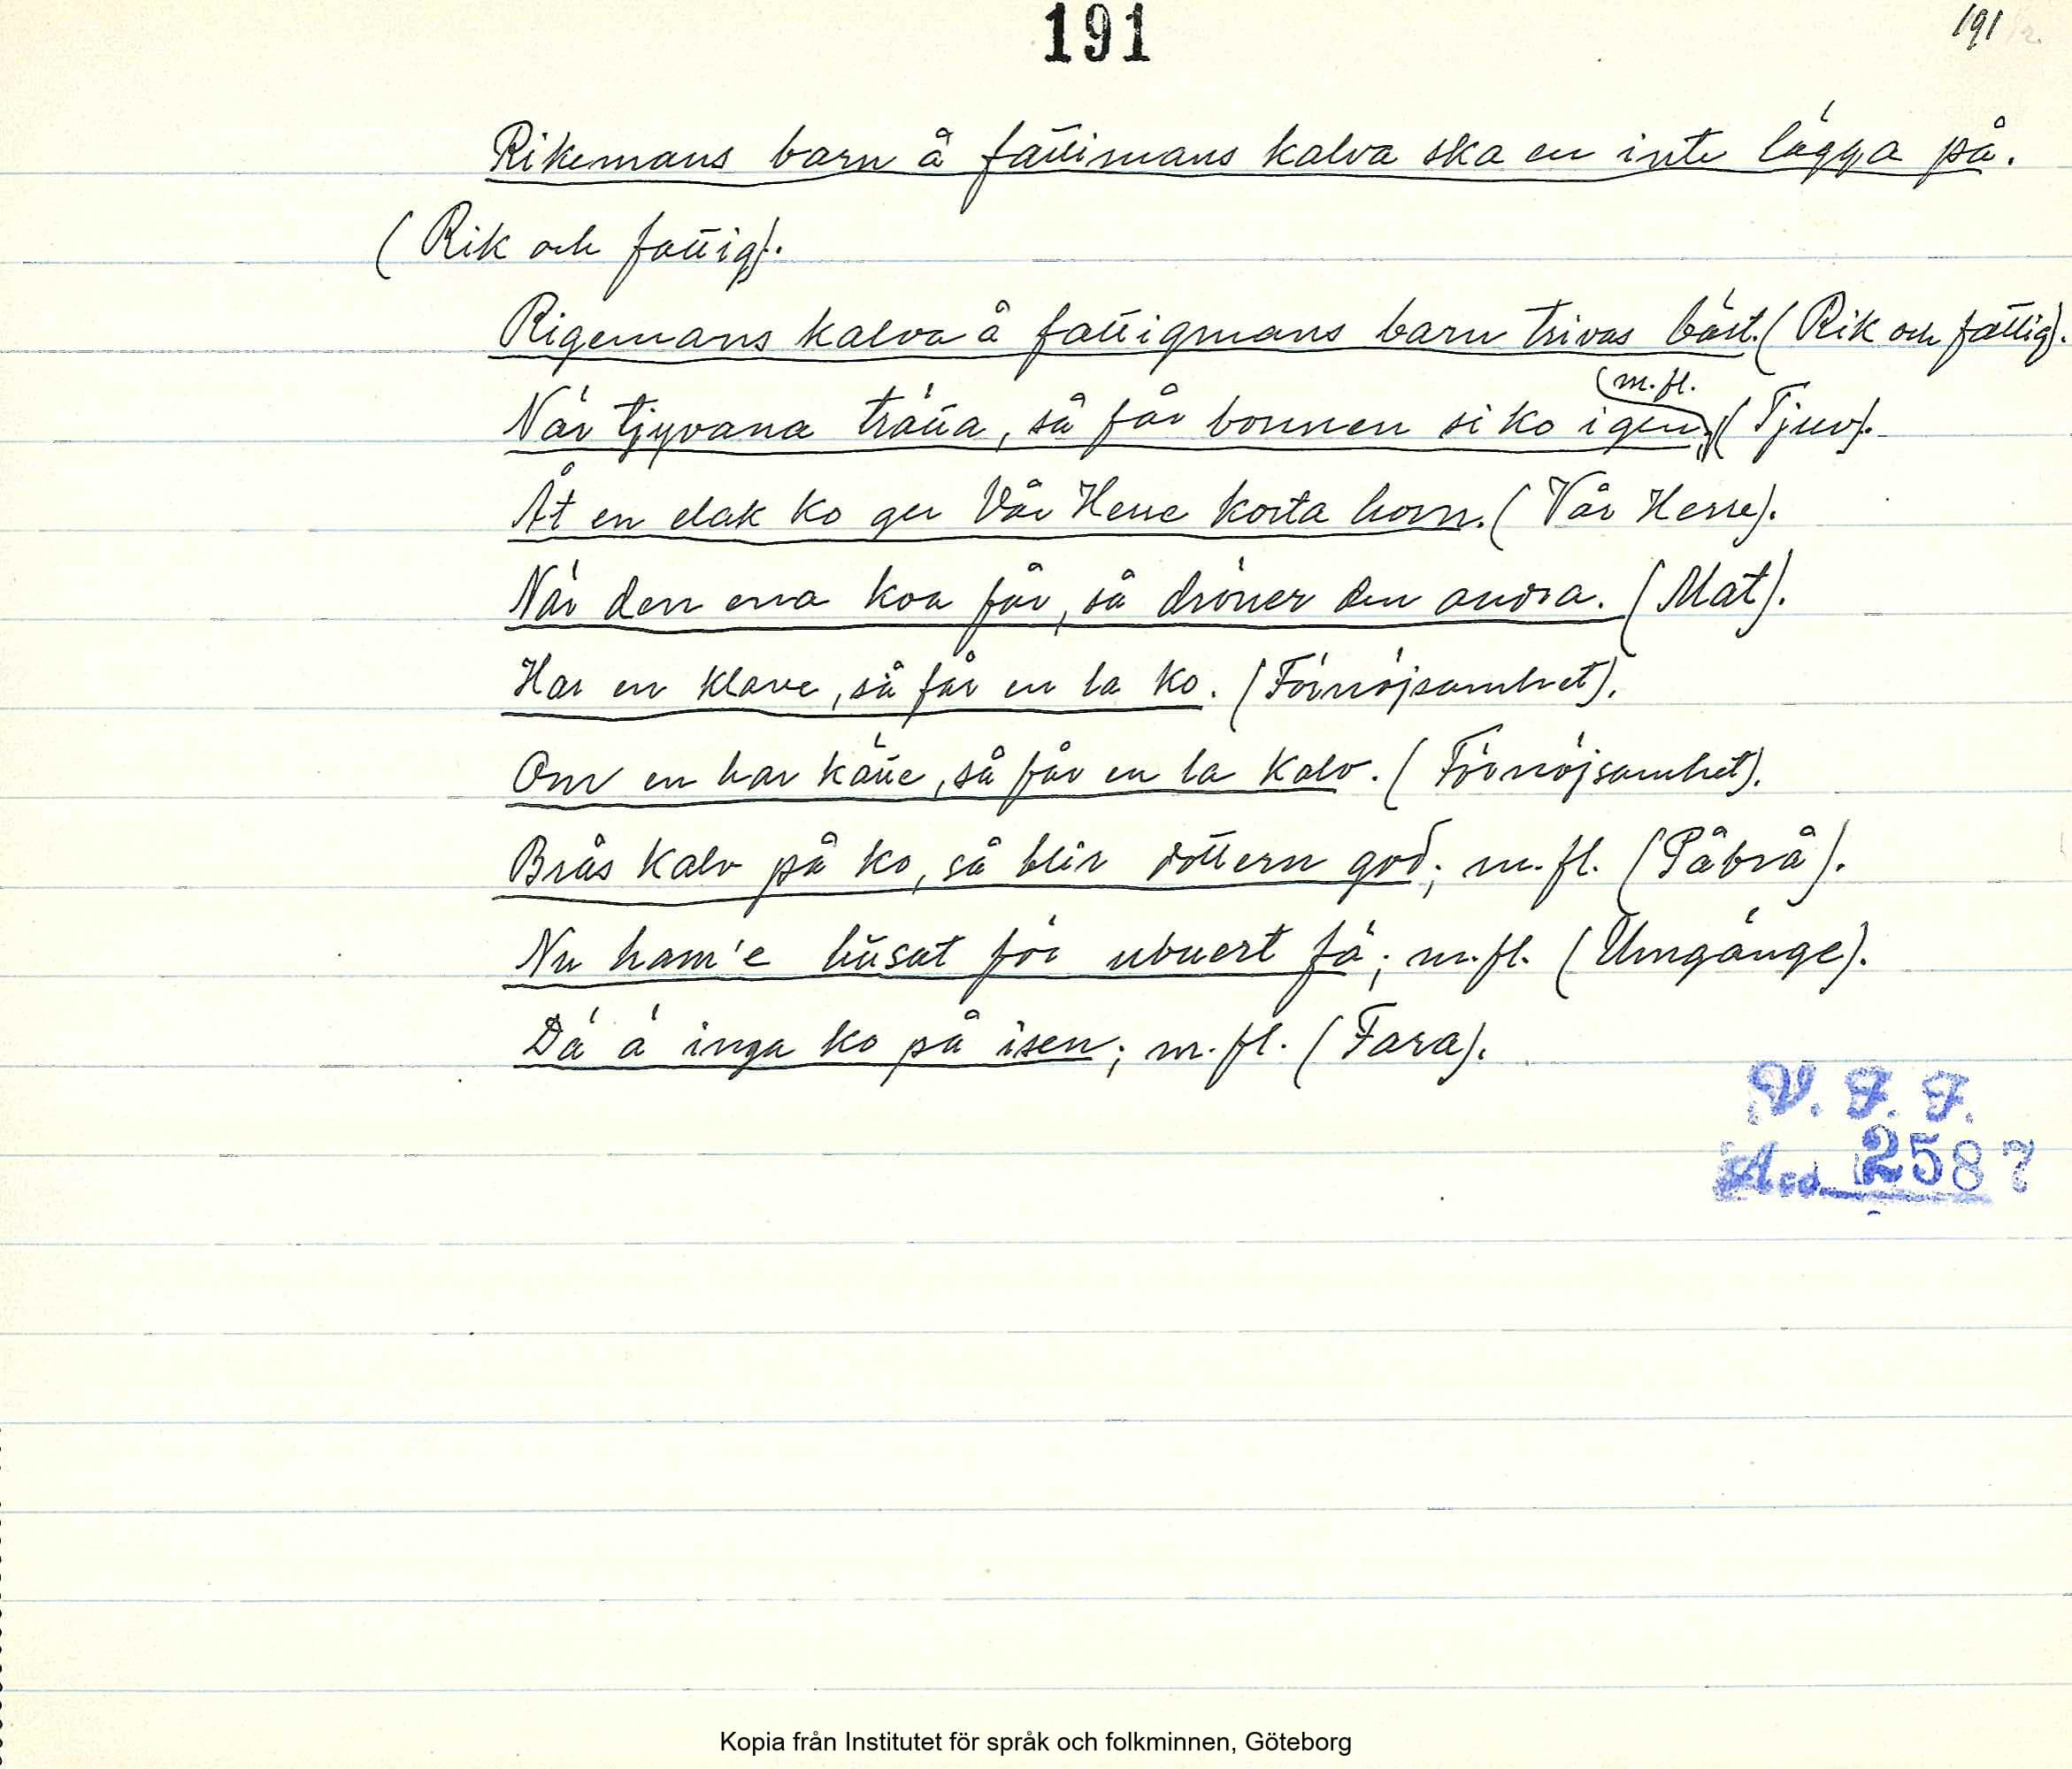 191
191
Rikemans barn å fattimans kalva ska en inte lägga på.
(Rik och fattig).
Rigemans kalva å fattigmans barn trivas bäst. (Rik och fattig).
m.fl.
När tjyvana trätta, så får bonnen si ko igen; (Tjuv).
Åt en elak ko ger Vår Herre korta horn. (Vår Herre).
När den ena koa får, så dröner den andra. (Mat).
Har en klave, så får en la ko. (Förnöjsamhet).
Om en har kätte, så får en la kalv. (Förnöjsamhet).
Brås kalv på ko, så blir dottern god; m.fl. (Påbrå).
Nu ham'e husat för ubuert fä; m.fl. (Umgänge).
Dä ä inga ko på isen; m.fl. (Fara).
V. F. F.
Acc. 2587
Kopia från Institutet för språk och folkminnen, Göteborg